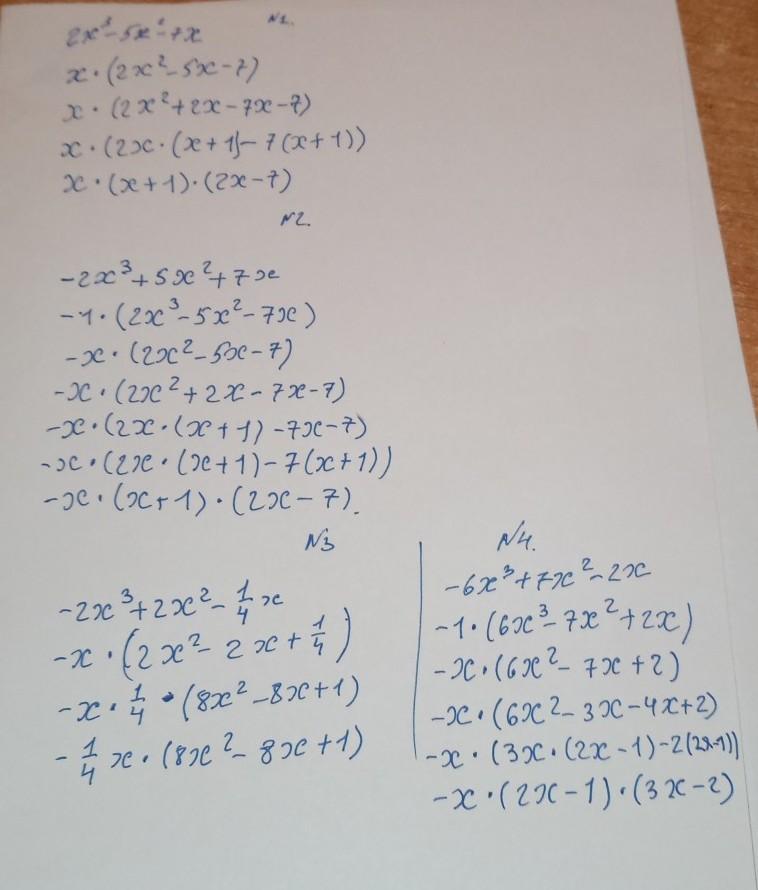 N1.
2x³-5x²-7x
x·(2x²-5x-7)
x·(2x²+2x-7x-7)
x·(2x·(x+1)-7(x+1))
x·(x+1)·(2x-7)
N2.
-2x³+5x²+7x
-1·(2x³-5x²-7x)
-x·(2x²-5x-7)
-x·(2x²+2x-7x-7)
-x·(2x·(x+1)-7x-7)
-x·(2x·(x+1)-7(x+1))
-x·(x+1)·(2x-7).
N3
-2x³+2x²-1/4x
-x·(2x²-2x+1/4)
-x·1/4·(8x²-8x+1)
-1/4x·(8x²-8x+1)
N4.
-6x³+7x²-2x
-1·(6x³-7x²+2x)
-x·(6x²-7x+2)
-x·(6x²-3x-4x+2)
-x·(3x·(2x-1)-2(2x-1))
-x·(2x-1)·(3x-2)